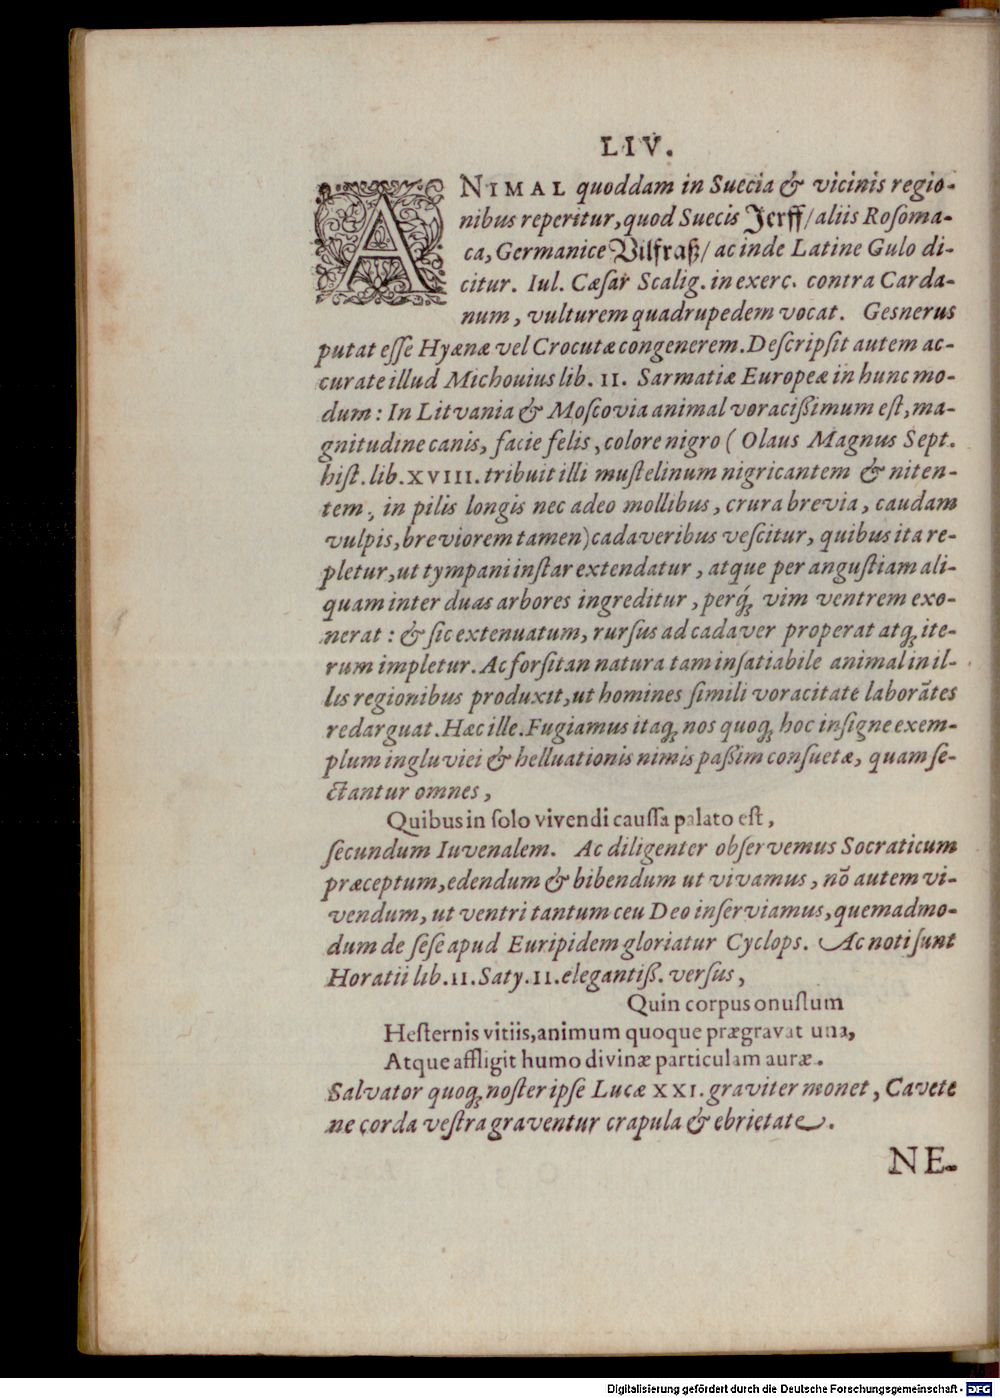 LIV.
ANIMAL quoddam in Suecia & vicinis regio-
nibus reperitur, quod Suecis Jerff/ aliis Roſoma-
ca, Germanice Vilfraß/ ac inde Latine Gulo di-
citur. Iul. Cæſar Scalig. in exerc. contra Carda-
num, vulturem quadrupedem vocat. Gesnerus
putat eſſe Hyænæ vel Crocutæ congenerem. Deſcripſit autem ac-
curate illud Michouius lib. II. Sarmatiæ Europeæ in hunc mo-
dum: In Litvania & Moſcovia animal voracißimum eſt, ma-
gnitudine canis, facie felis, colore nigro ( Olaus Magnus Sept.
hiſt. lib. XVIII. tribuit illi muſtelinum nigricantem & niten-
tem, in pilis longis nec adeo mollibus, crura brevia, caudam
vulpis, breviorem tamen) cadaveribus veſcitur, quibus ita re-
pletur, ut tympani inſtar extendatur, atque per anguſtiam ali-
quam inter duas arbores ingreditur, perq́ꝫ vim ventrem exo-
nerat: & ſic extenuatum, rurſus ad cadaver properat atqꝫ ite-
rum impletur. Ac forſitan natura tam inſatiabile animal in il-
lis regionibus produxit, ut homines ſimili voracitate laborãtes
redarguat. Hæc ille. Fugiamus itaqꝫ nos quoqꝫ hoc inſigne exem-
plum ingluviei & helluationis nimis paßim conſuetæ, quam ſe-
ctantur omnes,
Quibus in ſolo vivendi cauſſa palato eſt,
ſecundum Iuvenalem. Ac diligenter obſervemus Socraticum
præceptum, edendum & bibendum ut vivamus, nõ autem vi-
vendum, ut ventri tantum ceu Deo inſerviamus, quemadmo-
dum de ſeſe apud Euripidem gloriatur Cyclops. Ac noti ſunt
Horatii lib. II. Saty. II. elegantiß. verſus,
Quin corpus onuſtum
Heſternis vitiis, animum quoque prægravat una,
Atque affligit humo divinæ particulam auræ.
Salvator quoqꝫ noſter ipſe Lucæ XXI. graviter monet, Cavete
ne corda veſtra graventur crapula & ebrietate.
NE-
Digitalisierung gefördert durch die Deutsche Forschungsgemeinschaft - DFG